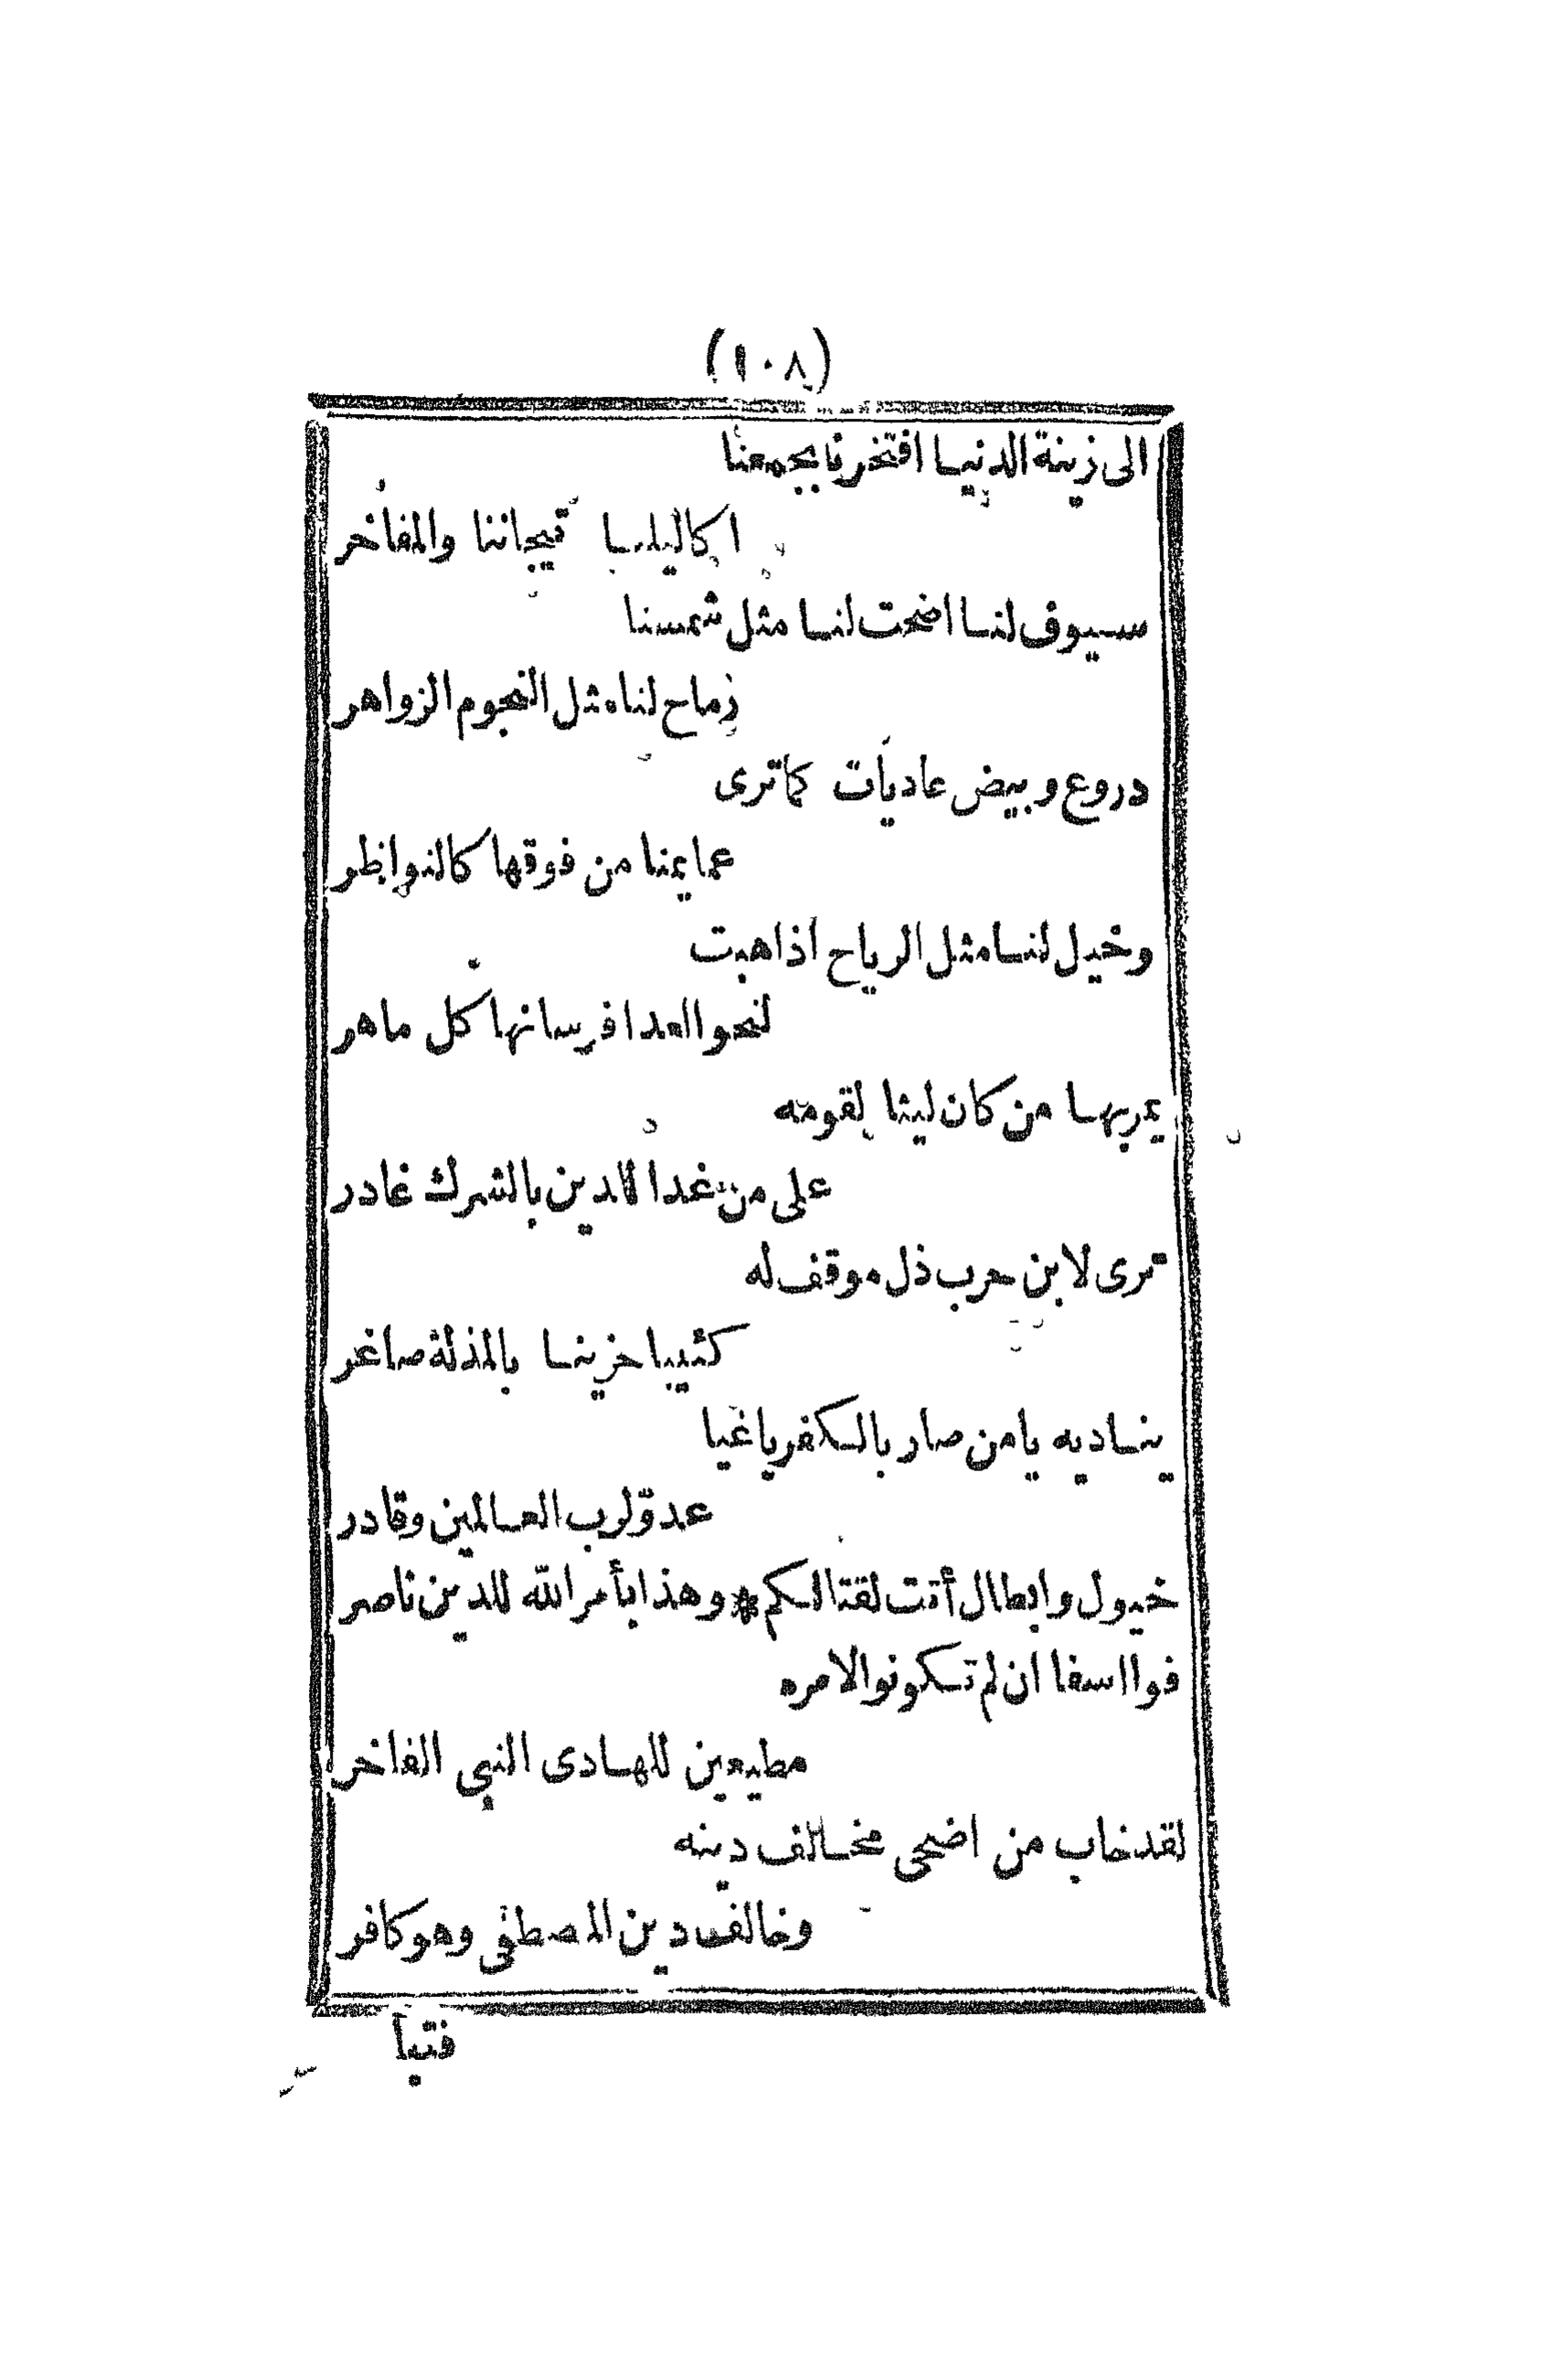 (١٠٨)
الى زينة الدنيا افتخرنا بجمعنا
اكاليلنا تيجاننا والمفاخر
سيوف لنا اضحت لنا مثل شمسنا
رماح لنا مثل النجوم الزواهر
دروع وبيض عاديات كما ترى
عمايمنا من فوقها كالنواظر
وخيل لنا مثل الرياح اذا هبت
لنحو العدا فرسانها كل ماهر
يمر بها من كان ليثا لقومه
على من غدا للدين بالشرك غادر
ترى لابن حرب ذل موقف له
كئيبا حزينا بالمذلة صاغر
يناديه يا من صار بالكفر باغيا
عدوّ لرب العالمين وقادر
خيول وابطال أتت لقتالكم * وهذا بأمر الله للدين ناصر
فوااسفا ان لم تكونوا لامره
مطيعين للهادى النبى الفاخر
لقد خاب من اضحى مخالف دينه
وخالف دين المصطفى وهو كافر
فتبا